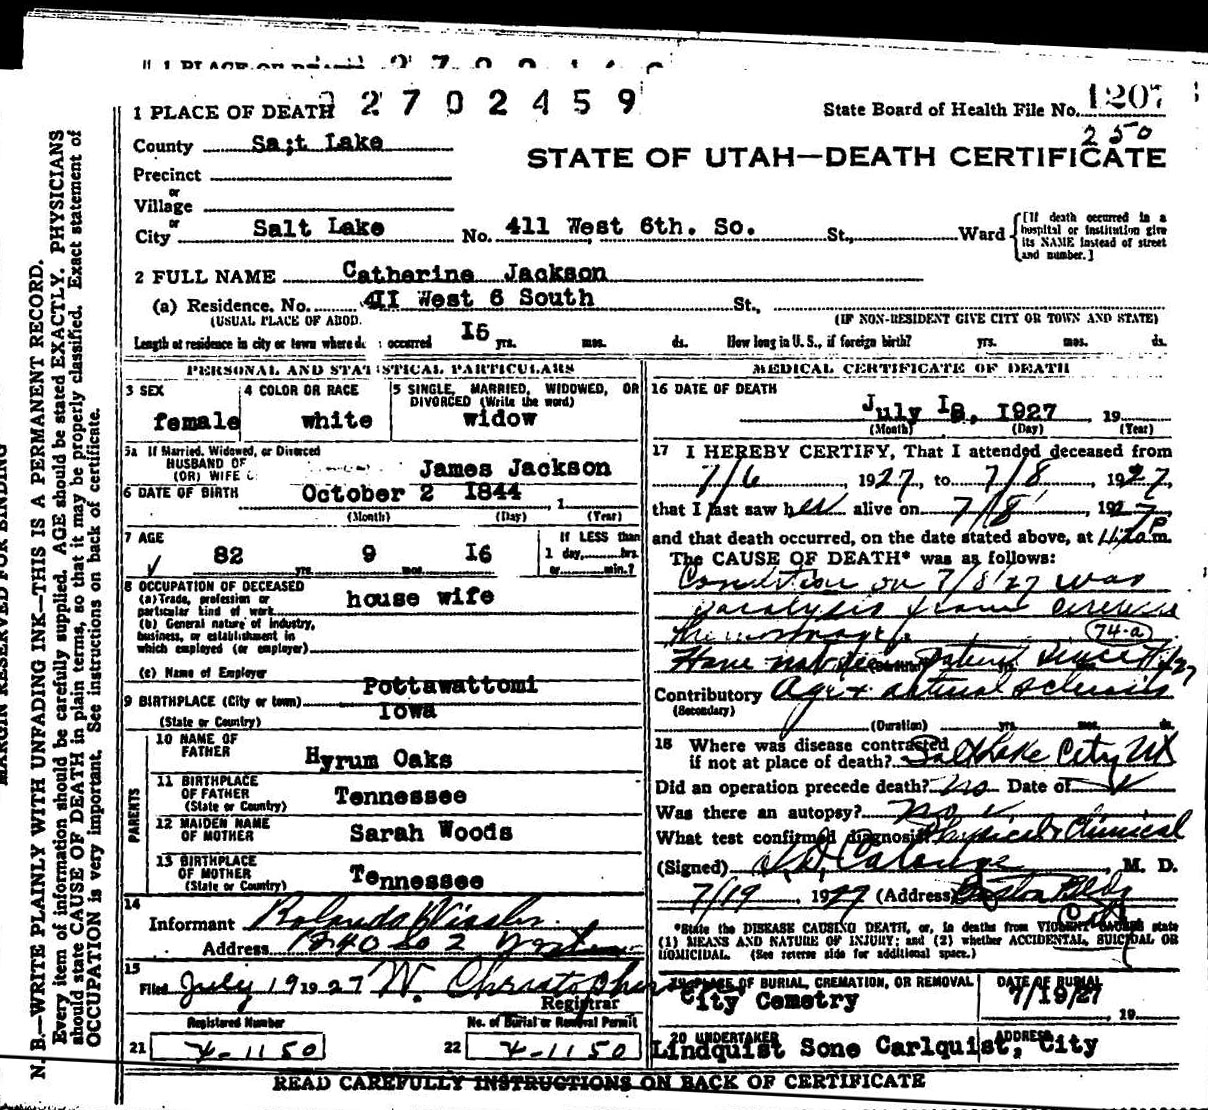 1 PLACE OF DEATH 2702459
State Board of Health File No. 1207
250
County Sa;t Lake
STATE OF UTAH—DEATH CERTIFICATE
Precinct
or
Village
or
City Salt Lake No. 411 West 6th. So. St., Ward
[If death occurred in a hospital or institution give its NAME instead of street and number.]
2 FULL NAME Catherine Jackson
(a) Residence. No. 4II West 6 South St.,
(USUAL PLACE OF ABOD. (IF NON-RESIDENT GIVE CITY OR TOWN AND STATE)
Length of residence in city or town where de occurred I5 yrs. mos. ds. How long in U. S., if foreign birth? yrs. mos. ds.
PERSONAL AND STATISTICAL PARTICULARS
3 SEX
female
4 COLOR OR RACE
white
5 SINGLE, MARRIED, WIDOWED, OR DIVORCED (Write the word)
widow
5a If Married, Widowed, or Divorced
HUSBAND OF
(OR) WIFE
James Jackson
6 DATE OF BIRTH October 2 I844, 1
(Month) (Day) (Year)
7 AGE
82 yrs. 9 mos. I6
If LESS than
1 day, hrs.
or min.?
8 OCCUPATION OF DECEASED
(a) Trade, profession or
particular kind of work house wife
(b) General nature of industry,
business, or establishment in
which employed (or employer)
(c) Name of Employer
9 BIRTHPLACE (City or town) Pottawattomi
(State or Country) Iowa
PARENTS
10 NAME OF
FATHER Hyrum Oaks
11 BIRTHPLACE
OF FATHER
(State or Country) Tennessee
12 MAIDEN NAME
OF MOTHER Sarah Woods
13 BIRTHPLACE
OF MOTHER
(State or Country) Tennessee
14
Informant
Address 1240 So 2
15
Filed July 19 1927 W. Christopherson
Registrar
Registered Number
21 X-1150
No. of Burial or Removal Permit
22 X-1150
MEDICAL CERTIFICATE OF DEATH
16 DATE OF DEATH
July I8, I927 19
(Month) (Day) (Year)
17 I HEREBY CERTIFY, That I attended deceased from
7/6, 1927, to 7/8, 1927,
that I last saw her alive on 7/8, 1927
and that death occurred, on the date stated above, at m.
The CAUSE OF DEATH* was as follows:
Condition on 7/8/27 was
paralysis from cerebral
hemorrhage. 74-a
Have not seen patient since
Contributory Age + arterial sclerosis
(Secondary)
(Duration) yrs. mos. ds.
18 Where was disease contracted
if not at place of death? Salt Lake City Ut
Did an operation precede death? no Date of
Was there an autopsy? no
What test confirmed diagnosis? Physical & Clinical
(Signed) M. D.
7/19, 1927 (Address) Boston Bldg
City
*State the DISEASE CAUSING DEATH, or, in deaths from VIOLENT CAUSES state
(1) MEANS AND NATURE OF INJURY; and (2) whether ACCIDENTAL, SUICIDAL OR
HOMICIDAL. (See reverse side for additional space.)
19 PLACE OF BURIAL, CREMATION, OR REMOVAL
City Cemetry
DATE OF BURIAL
7/19/27, 19
20 UNDERTAKER
Lindquist Sons Carlquist,
ADDRESS
City
READ CAREFULLY INSTRUCTIONS ON BACK OF CERTIFICATE
MARGIN RESERVED FOR BINDING
N. B.—WRITE PLAINLY WITH UNFADING INK—THIS IS A PERMANENT RECORD.
Every item of information should be carefully supplied. AGE should be stated EXACTLY. PHYSICIANS
should state CAUSE OF DEATH in plain terms, so that it may be properly classified. Exact statement of
OCCUPATION is very important. See instructions on back of certificate.